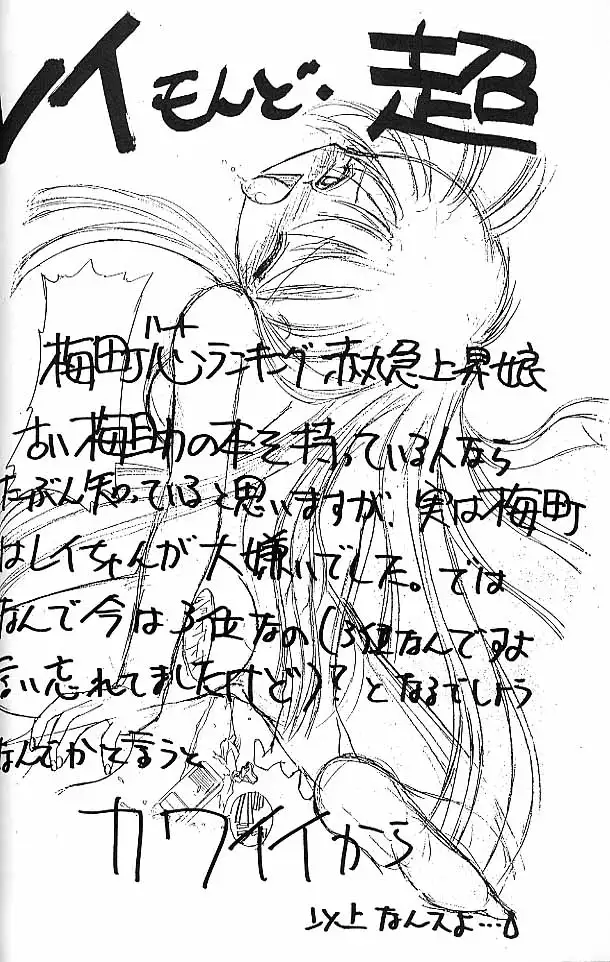 レイモんど・超
ハート
梅町心ランキング赤丸急上昇娘
古い梅町の本を持っている人なら
たぶん知っていると思いますが、実は梅町
はレイちゃんが大嫌いでした。では
なんで今は3位なの(3位なんですよ
言い忘れてましたけど)?となるでしょう
なんでかて言うと
カワイイから
以上なんスよ…。